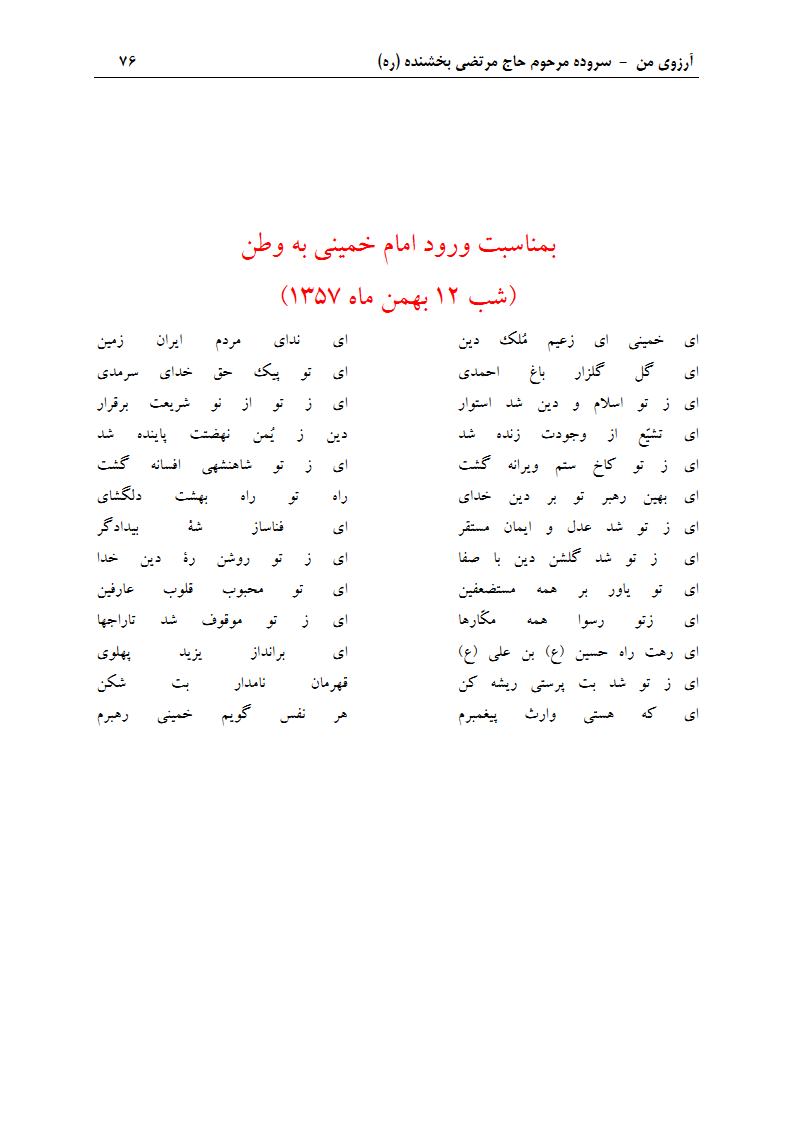 آرزوی من - سروده مرحوم حاج مرتضی بخشنده (ره) ۷۶
بمناسبت ورود امام خمینی به وطن
(شب ۱۲ بهمن ماه ۱۳۵۷)
ای خمینی ای زعیم مُلک دین ای ندای مردم ایران زمین
ای گل گلزار باغ احمدی ای تو پیک حق خدای سرمدی
ای ز تو اسلام و دین شد استوار ای ز تو از نو شریعت برقرار
ای تشیّع از وجودت زنده شد دین ز یُمن نهضتت پاینده شد
ای ز تو کاخ ستم ویرانه گشت ای ز تو شاهنشهی افسانه گشت
ای بهین رهبر تو بر دین خدای راه تو راه بهشت دلگشای
ای ز تو شد عدل و ایمان مستقر ای فناساز شهٔ بیدادگر
ای ز تو شد گلشن دین با صفا ای ز تو روشن رهٔ دین خدا
ای تو یاور بر همه مستضعفین ای تو محبوب قلوب عارفین
ای زتو رسوا همه مکّارها ای ز تو موقوف شد تاراجها
ای رهت راه حسین (ع) بن علی (ع) ای برانداز یزید پهلوی
ای ز تو شد بت پرستی ریشه کن قهرمان نامدار بت شکن
ای که هستی وارث پیغمبرم هر نفس گویم خمینی رهبرم